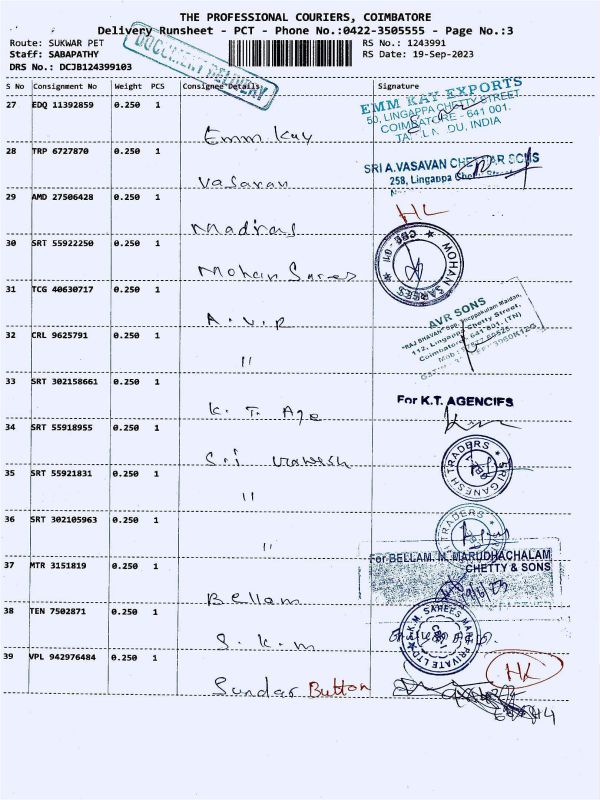 THE PROFESSIONAL COURIERS, COIMBATORE
Delivery Runsheet - PCT - Phone No.:0422-3505555 - Page No.:3
Route: SUKWAR PET
RS No.: 1243991
Staff: SABAPATHY
RS Date: 19-Sep-2023
DRS No.: DCJB124399103
DOCUMENT DELIVERY
S No Consignment No Weight PCS Consignee Details Signature
27 EDQ 11392859 0.250 1
EMM KAY EXPORTS
50, LINGAPPA CHETTY STREET
COIMBATORE - 641 001.
INDIA
Emm Kay
28 TRP 6727870 0.250 1
SRI A.VASAVAN CHETTIAR SONS
258, Lingappa
Vasavan
29 AMD 27506428 0.250 1
HL
Madras
30 SRT 55922250 0.250 1
MOHAN SAREES
CBE - 01
Mohan Sarees
31 TCG 40630717 0.250 1
AVR SONS
"RAJ BHAVAN"
112, Lingappa Chetty Street,
Coimbatore - 641 001. (TN)
A.V.R
32 CRL 9625791 0.250 1
"
33 SRT 302158661 0.250 1
For K.T. AGENCIES
K. T. Age
34 SRT 55918955 0.250 1
SRI GANESH TRADERS
Sri Ganesh
35 SRT 55921831 0.250 1
"
36 SRT 302105963 0.250 1
TRADERS
"
37 MTR 3151819 0.250 1
For BELLAM. M. MARUDHACHALAM
CHETTY & SONS
Bellam
38 TEN 7502871 0.250 1
S.K.M. SAREES
PRIVATE LTD
S. K. m
39 VPL 942976484 0.250 1
HL
Sundar Button